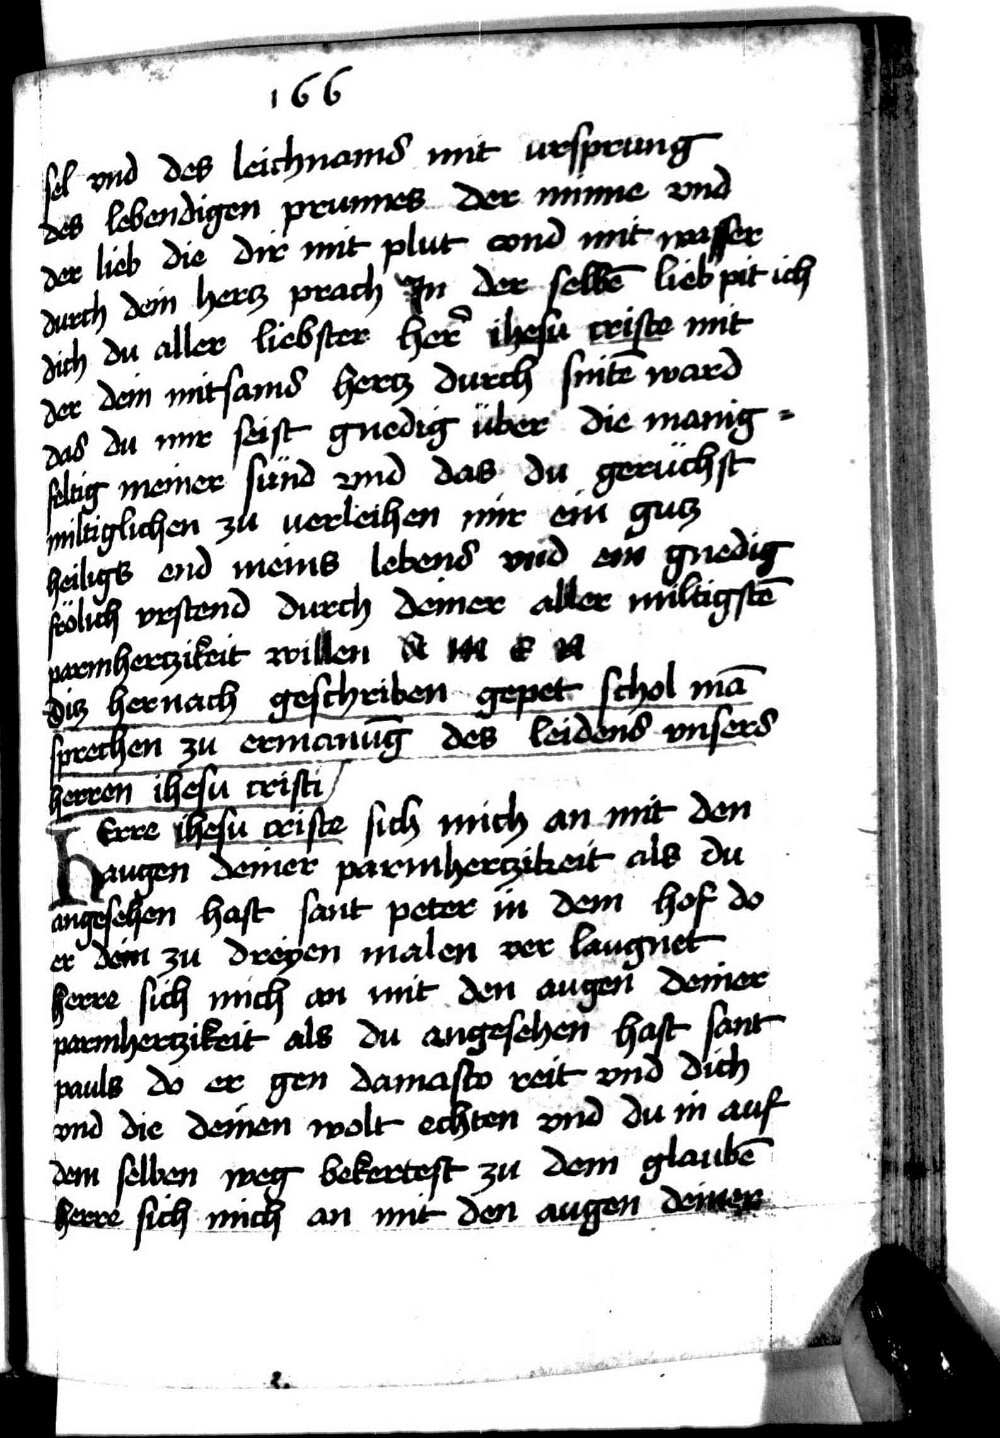 166
sel vnd des leichnams mit ursprung
des lebendigen prunnes der minne vnd
der lieb die dir mit plut vnd mit wasser
durch dein hertz prach In der selbē lieb pit ich
dich du aller liebster her ihesu criste mit
der dein mitsams hertz durch snitē ward
das du mir seist gnedig über die manig=
feltig meiner sünd vnd das du gerüchst
miltiglichen zu uerleihen mir ein gutz
heiligs end meins lebens vnd ein gnedig
frölich vrstend durch deiner aller miltigstē
parmhertzikeit willen A M E N
diz hernach geschriben gepet schol mā
sprechen zu ermanūg des leidens vnsers
herren ihesu cristi
HErre ihesu criste sich mich an mit den
augen deiner parmhertzikeit als du
angesehen hast sant peter in dem hof do
er dein zu dreyen malen ver laugnet
herre sich mich an mit den augen deiner
parmhertzikeit als du angesehen hast sant
pauls do er gen damasco reit vnd dich
vnd die deinen wolt echten vnd du in auf
dem selben weg bekertest zu dem glaubē
herre sich mich an mit den augen deiner